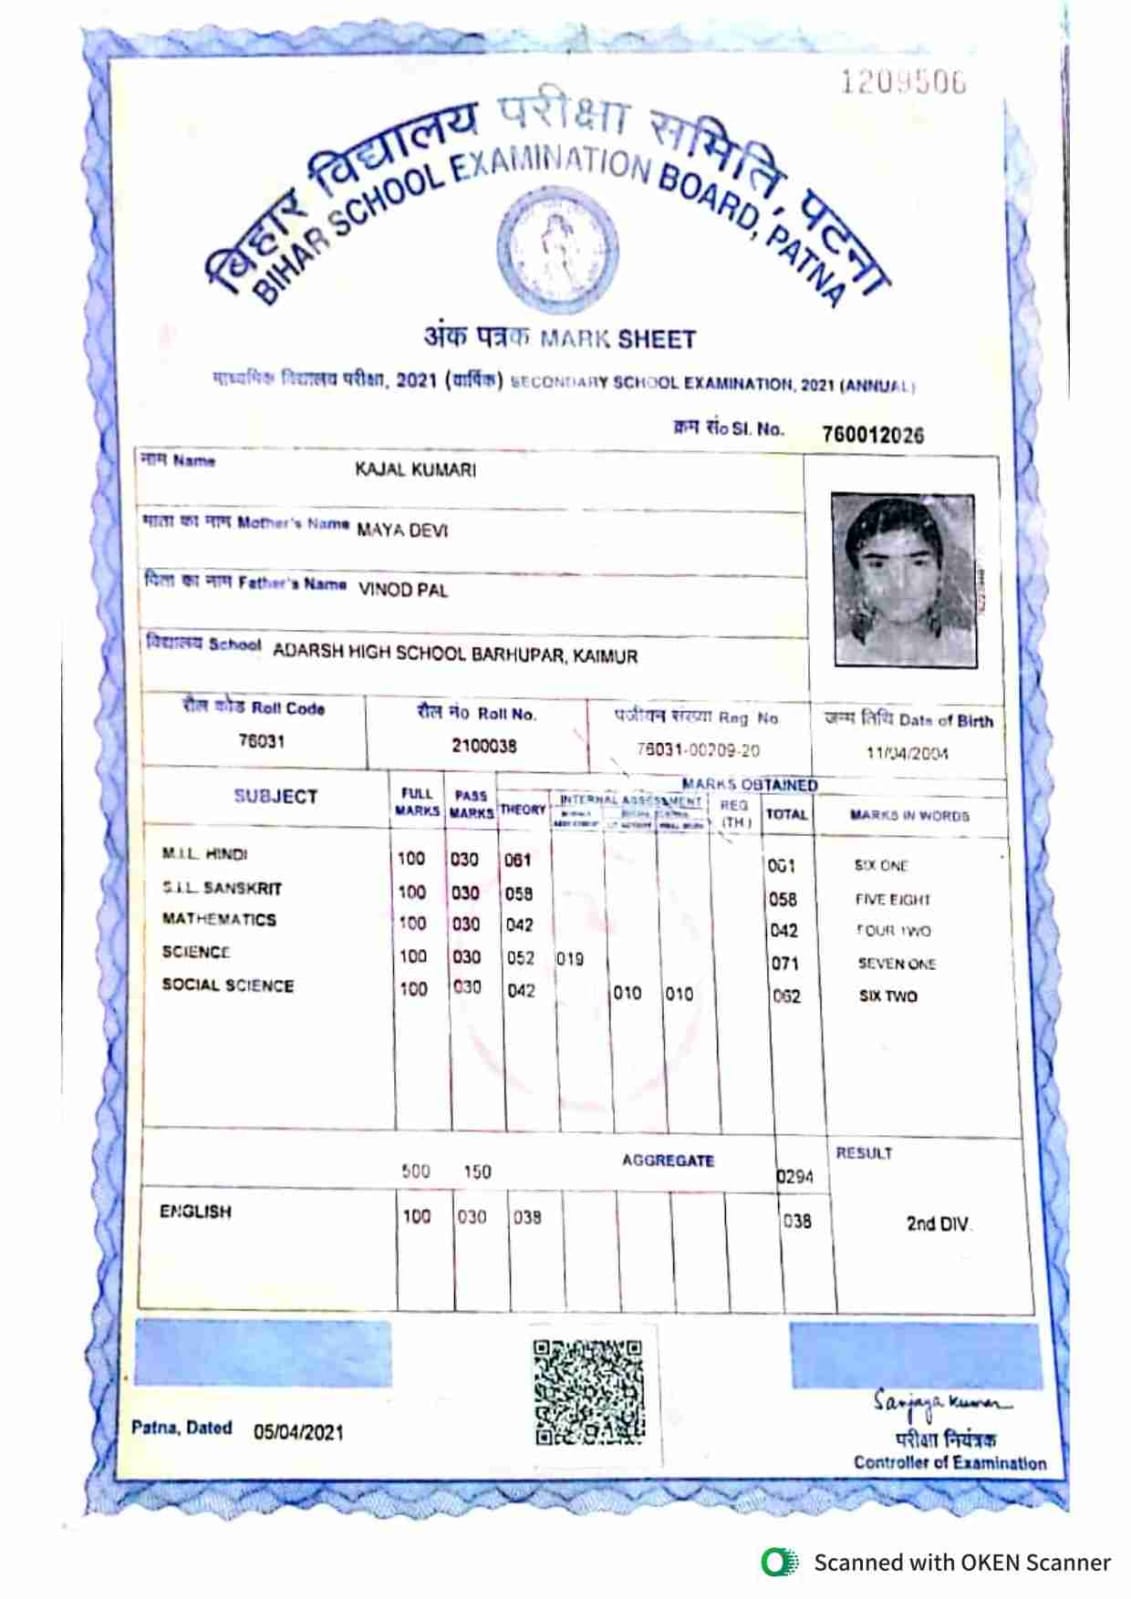 1209506
बिहार विद्यालय परीक्षा समिति, पटना
BIHAR SCHOOL EXAMINATION BOARD, PATNA
अंक पत्रक MARK SHEET
माध्यमिक विद्यालय परीक्षा, 2021 (वार्षिक) SECONDARY SCHOOL EXAMINATION, 2021 (ANNUAL)
क्रम सं० Sl. No. 760012026
नाम Name KAJAL KUMARI
माता का नाम Mother's Name MAYA DEVI
पिता का नाम Father's Name VINOD PAL
विद्यालय School ADARSH HIGH SCHOOL BARHUPAR, KAIMUR
रौल कोड Roll Code रौल नं० Roll No. पंजीयन संख्या Reg No जन्म तिथि Date of Birth
76031 2100038 76031-00209-20 11/04/2004
MARKS OBTAINED
SUBJECT FULL MARKS PASS MARKS THEORY INTERNAL ASSESSMENT REG (TH) TOTAL MARKS IN WORDS
M.I.L. HINDI 100 030 061 061 SIX ONE
S.I.L. SANSKRIT 100 030 058 058 FIVE EIGHT
MATHEMATICS 100 030 042 042 FOUR TWO
SCIENCE 100 030 052 019 071 SEVEN ONE
SOCIAL SCIENCE 100 030 042 010 010 062 SIX TWO
500 150 AGGREGATE 0294 RESULT
ENGLISH 100 030 038 038 2nd DIV.
Patna, Dated 05/04/2021
Sanjaya Kumar
परीक्षा नियंत्रक
Controller of Examination
Scanned with OKEN Scanner